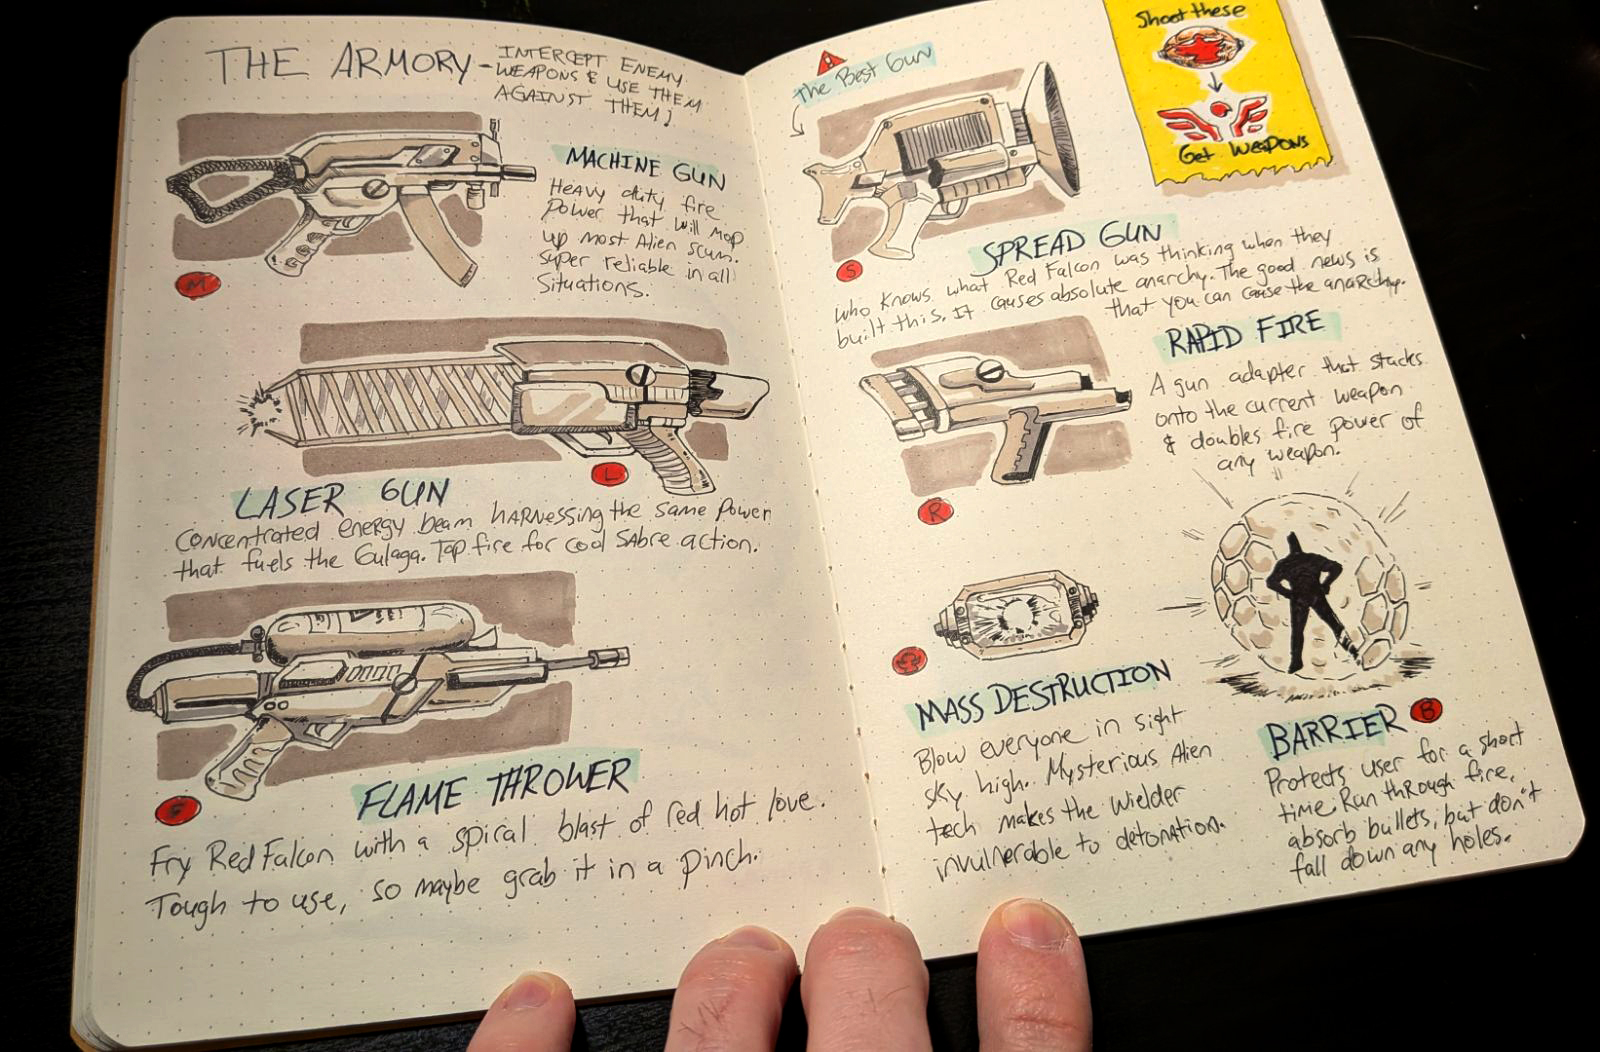 THE ARMORY -
INTERCEPT ENEMY
WEAPONS & USE THEM
AGAINST THEM!
MACHINE GUN
Heavy duty fire
power that will mop
up most Alien scum.
Super reliable in all
Situations.
M
L
LASER GUN
Concentrated energy beam harnessing the same Power
that fuels the Gulaga. Tap fire for cool Sabre action.
FLAME THROWER
F
Fry Red Falcon with a spiral blast of red hot love.
Tough to use, so maybe grab it in a pinch.
The Best Gun
Shoot these
Get Weapons
S
SPREAD GUN
Who knows what Red Falcon was thinking when they
built this. It causes absolute anarchy. The good news is
that you can cause the anarchy.
RAPID FIRE
A gun adapter that stacks
onto the current weapon
& doubles fire power of
any weapon.
R
MASS DESTRUCTION
Blow everyone in sight
sky high. Mysterious Alien
tech makes the Wielder
invulnerable to detonation.
BARRIER B
Protects user for a short
time. Run through fire,
absorb bullets, but don't
fall down any holes.